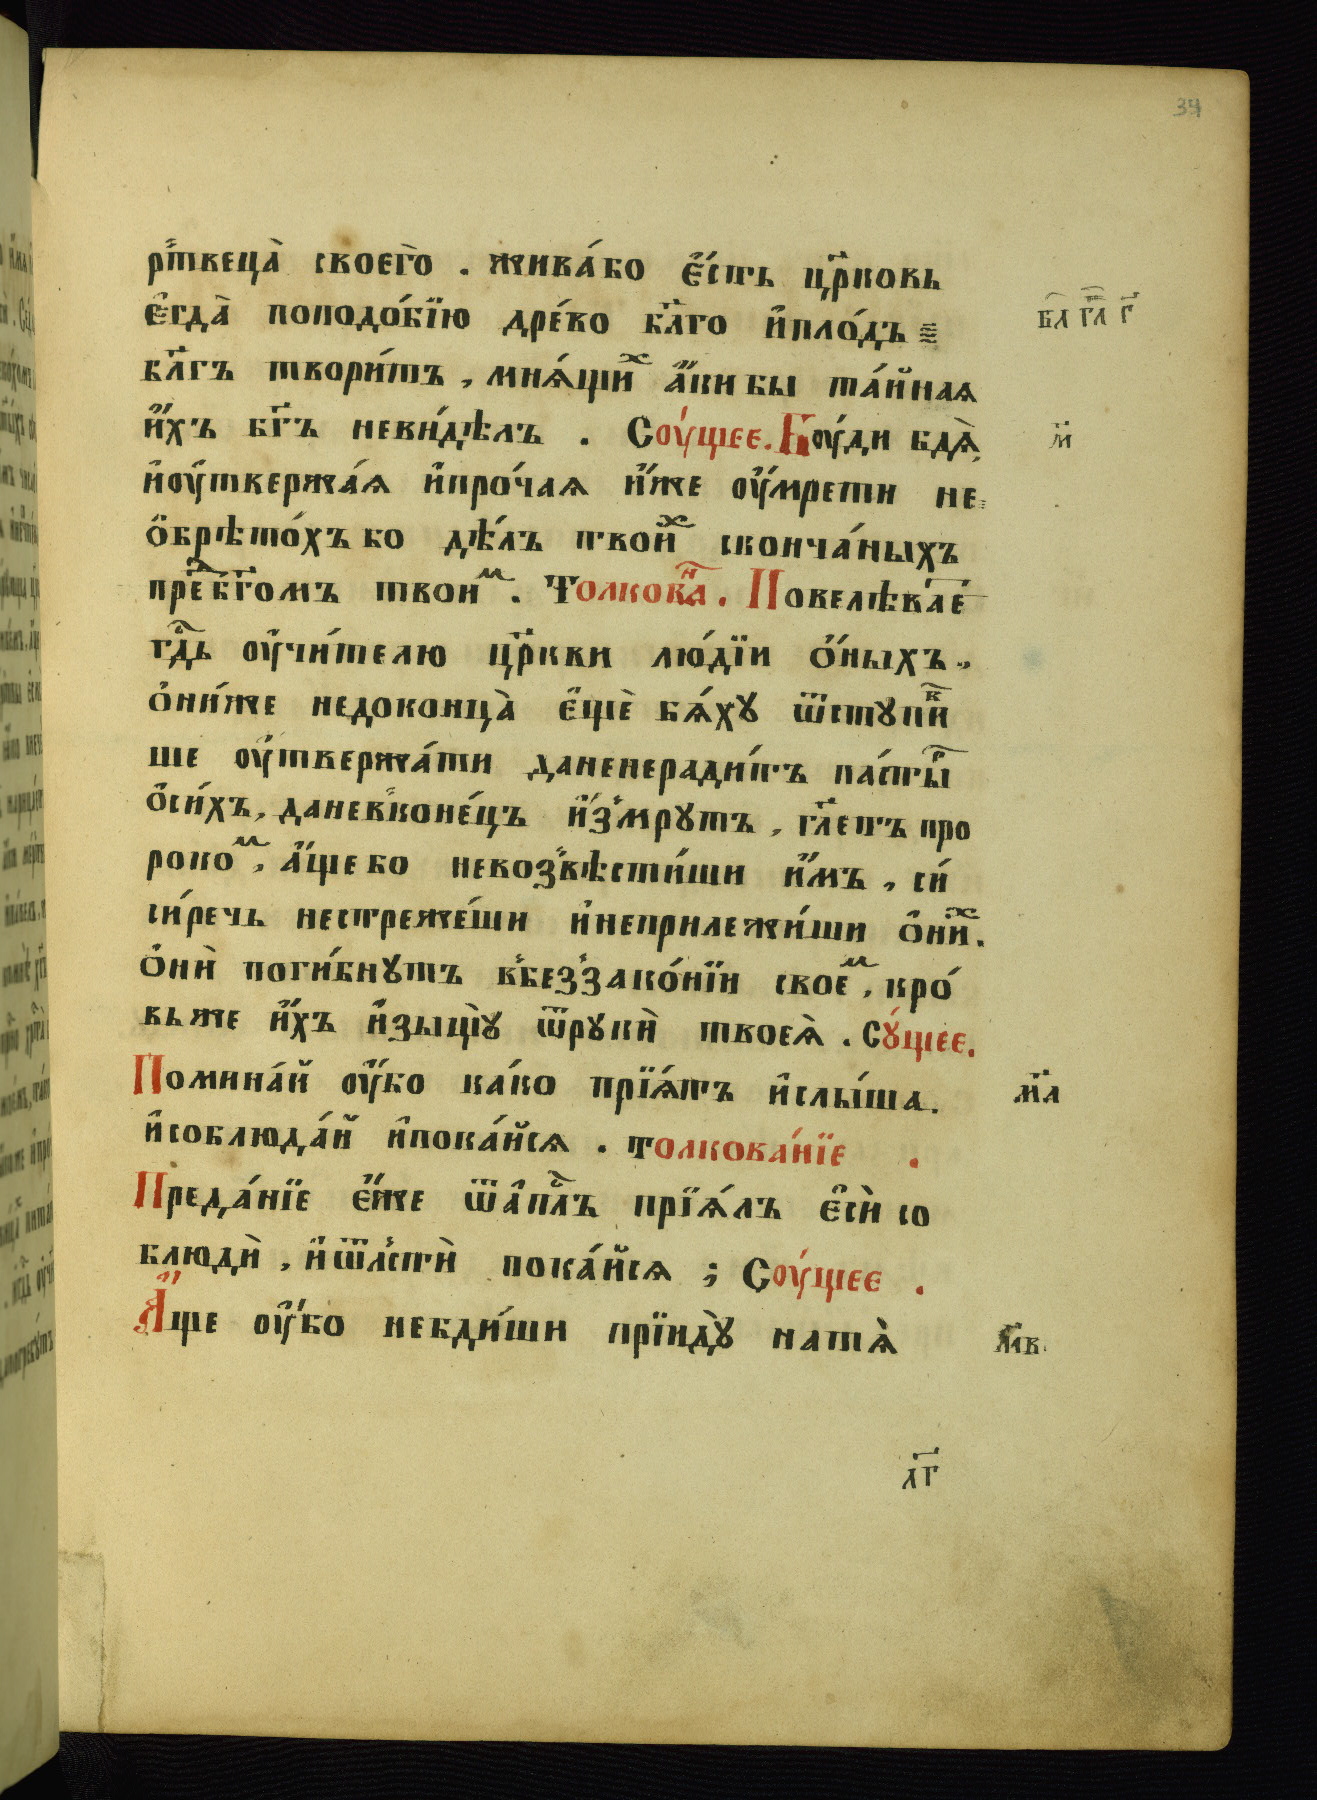 34
р҃твеца̀ своего̀ . жива́бо є҆́сть цр҃ковь
є҆гда̀ поподо́бїю дре́во бл҃го и҆пло́дъ
бл҃гъ твори́тъ , мнѧ́щиⷯ а҆́ки бы та́йнаѧ
и҆́хъ бг҃ъ неви́дѣлъ . Соу́щее . Боу́ди бдѧ̀,
и҆оу҆твержа́ѧ и҆про́чаѧ и҆́же оу҆́мрети не
ѻ҆брѣто́хъ бо дѣ́лъ твоиⷯ сконча́ныхъ
преⷣбг҃омъ твоиⷨ . Толковаⷩ . Повелѣвае
гдⷭ҇ь оу҆чи́телю цр҃кви лю́дїи ѻ҆́ныхъ ,
ѻ҆ни́же недоконца̀ є҆щѐ бѧ́хꙋ ѿстꙋпи́в
ше оу҆твержа́ти даненеради́тъ пасты́
ѻ҆си́хъ , даневконе́цъ и҆́змрꙋтъ , гл҃етъ про
рокоⷨ , а҆́ще бо невозвѣсти́ши и҆́мъ , си́
си́речь нестреже́ши и҆неприлежи́ши ѻ҆ниⷯ .
ѻ҆нѝ поги́бнꙋтъ вбеззако́нїи своеⷨ , кро́
вьже и҆́хъ и҆зыщꙋ̀ ѿрꙋкѝ твоеѧ̀ . Сꙋ́щее .
Помина́й оу҆́бо ка́ко прїѧ́тъ и҆слы́ша .
и҆соблюда́й и҆пока́йсѧ . толкова́нїе .
Преда́нїе є҆́же ѿа҆пⷭ҇лъ прїѧ́лъ є҆сѝ со
блюдѝ , и҆ѿлⷭ҇стѝ пока́йсѧ ; Соу́щее .
А҆́ще оу҆́бо небди́ши прїидꙋ̀ натѧ̀
бл҃а гл҃а г҃
м҃
м҃а
м҃в
л҃г